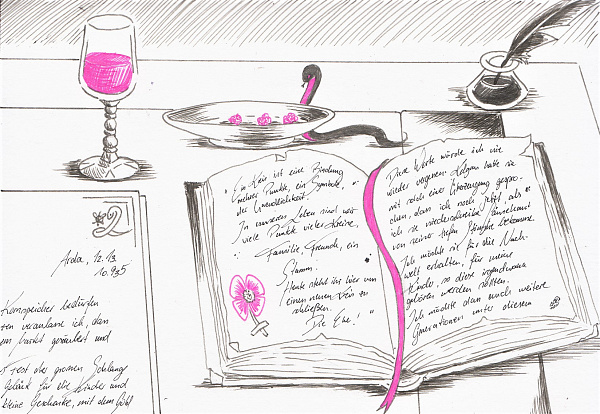 Arda, 12.13.
10.935
Kornspeicher bedürfen
veranlasse ich, dan
geräuchert und
Fest der grossen Schlange
Glück für die Kinder und
kleine Geschenke, mit dem
"Ein Kreis ist eine Bindung
mehrer Punkte, ein Symbol
der Unendlichkeit.
In unserem Leben sind wir
viele Punkte vieler Kreise,
Familie, Freunde, ein
Stamm.
Heute steht ihr hier um
einen neuen Kreis zu
schließen.
Die Ehe!"
Diese Worte würde ich nie
wieder vergessen. hatte sie
mit solch einer Überzeugung gespro-
chen, dass ich noch jetzt, als
ich sie niederschreibe, Gänsehaut
von seiner tiefen Stimme bekomme.
Ich möchte sie für die Nach-
welt erhalten, für meine
Kinder, so diese irgendwann
geboren werden sollten.
Ich möchte das noch weitere
Generationen unter diesem